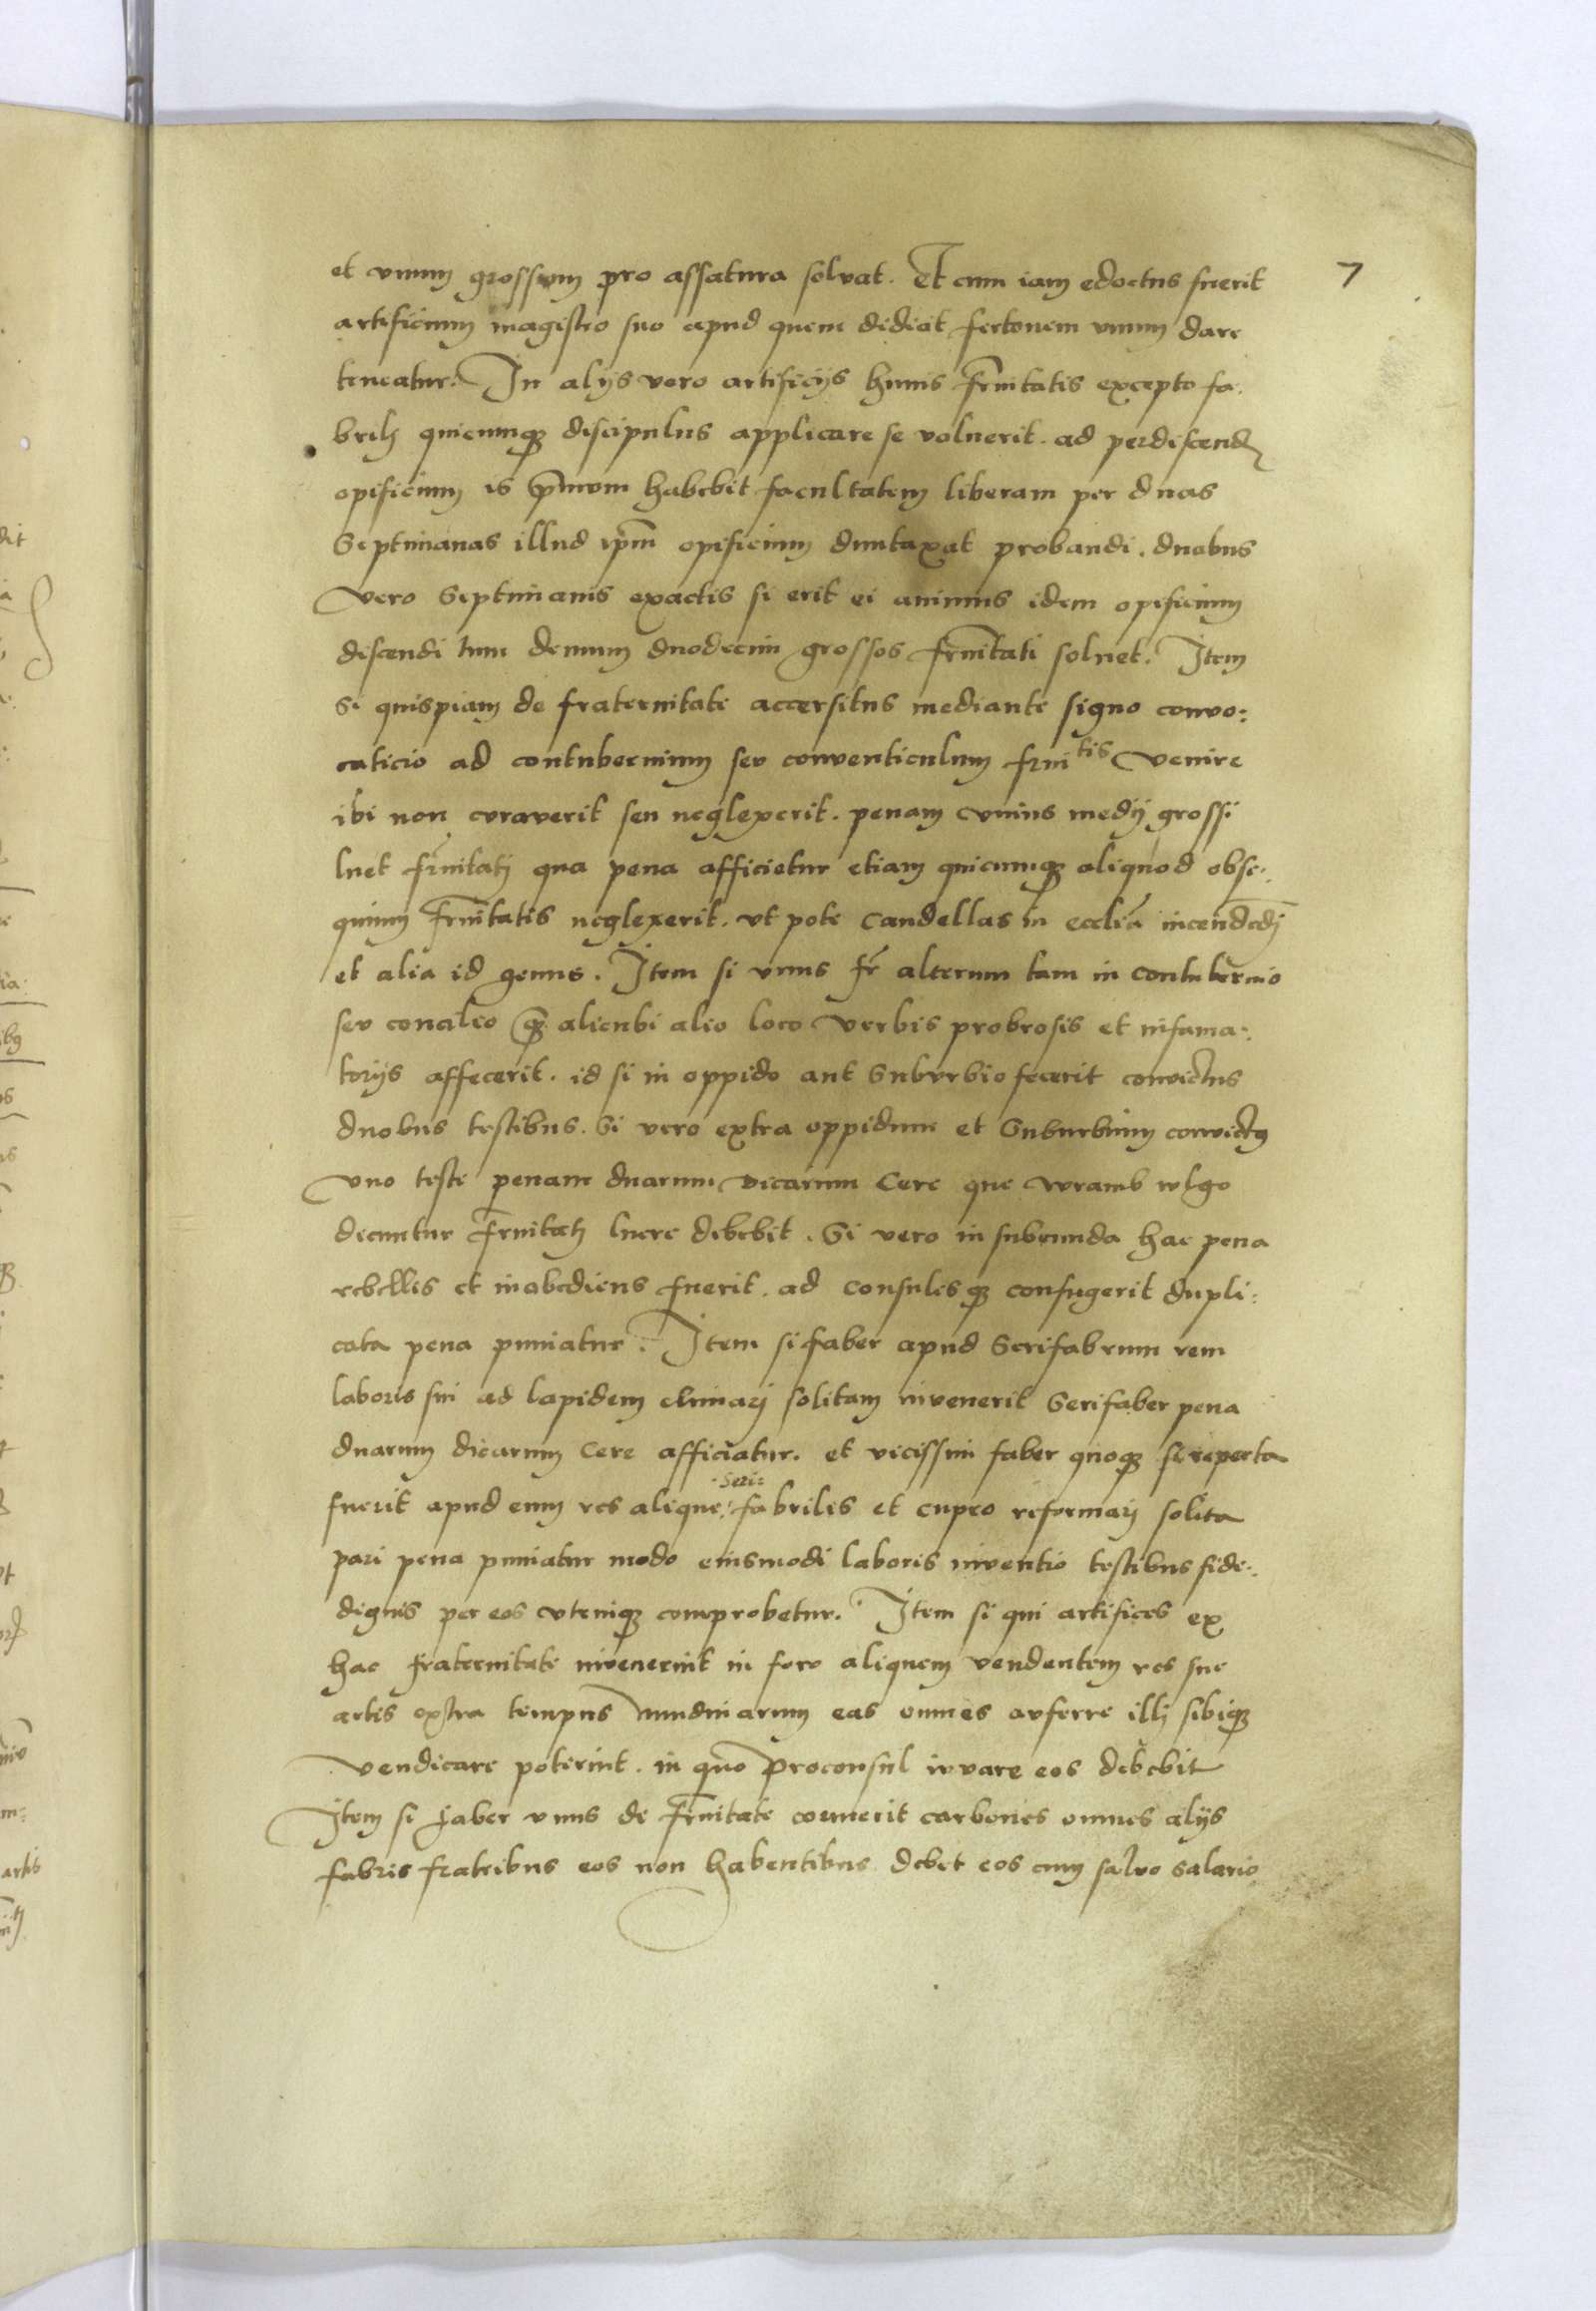 et vnum grossum pro assatura solvat. Et cum iam edoctus fuerit
7
artificium magistro suo apud quem didicit fertonem vnum dare
teneatur. In alijs vero artificijs huius frnitatis excepto fa:
brili quicumq discipulus applicare se voluerit. ad perdiscend
opificium is primum habebit facultatem liberam per duas
Septimanas illud ipm opificium duntaxat probandi. duabus
vero Septimanis exactis si erit ei animus idem opificium
discendi tum demum duodecim grossos frnitati soluet. Item
Si quispiam de fraternitate accersitus mediante signo convo:
caticio ad contubernium seu conventiculum frnitis venire
ibi non curaverit seu neglexerit. penam vnius medij grossi
luet frnitatj qua pena afficietur etiam quicumq aliquod obse:
quium frnitatis neglexerit. vt pote candellas in ecclia incendedj
et alia id genus. Item si vnus fr alterum tam in contubernio
seu concilio q alicubi alio loco verbis probrosis et infama:
torijs affecerit. id si in oppido aut Suburbio fecerit convictus
duobus testibus. Si vero extra oppidum et Suburbium convictg
vno teste penam duarum dicarum Cere que wramb wlgo
dicuntur frnitatj luere debebit. Si vero in subeunda hac pena
rebellis et inobediens fuerit. ad consulesq confugerit dupli:
cata pena puniatur. Item si faber apud Serifabrum rem
laboris sui ad lapidem elimarj solitam invenerit Serifaber pena
duarum dicarum Cere afficiatur. et vicissim faber quoq si reperta
fuerit apud eum res alique Seri: fabriles et cupro reformarj solita
pari pena puniatur modo eiusmodi laboris inventio testibus fide:
dignis per eos vtrinq comprobetur. Item si qui artifices ex
hac fraternitate invenerint in foro aliquem vendentem res sue
artis extra tempus nundinarum eas omnes auferre illj sibiq
vendicare poterint. in quo proconsul iuvare eos debebit
Item si faber vnus de frnitate coemerit carbones omnes alijs
fabris fratribus eos non habentibus debet eos cum salvo salario